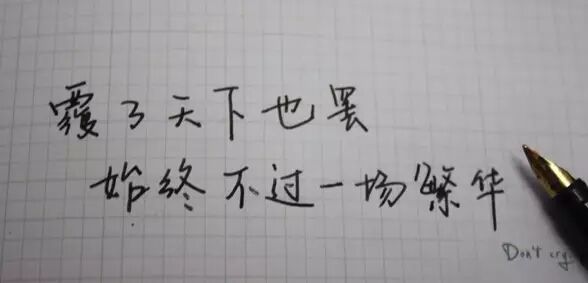 覆了天下也罢
始终不过一场繁华
Don't cry